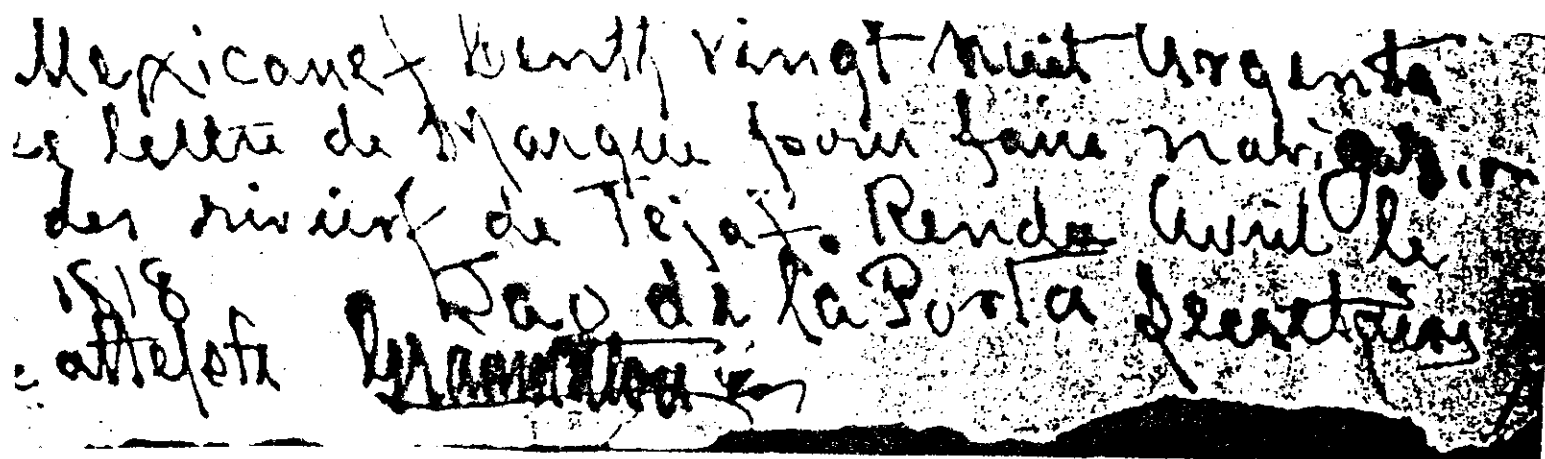 Mexicanes vingt huit Urgente
lettre de Marque pour faire navigation
des rivières de Tejas. Rendu Avril le
1818 Dao de la Porta Secretaire
atteste